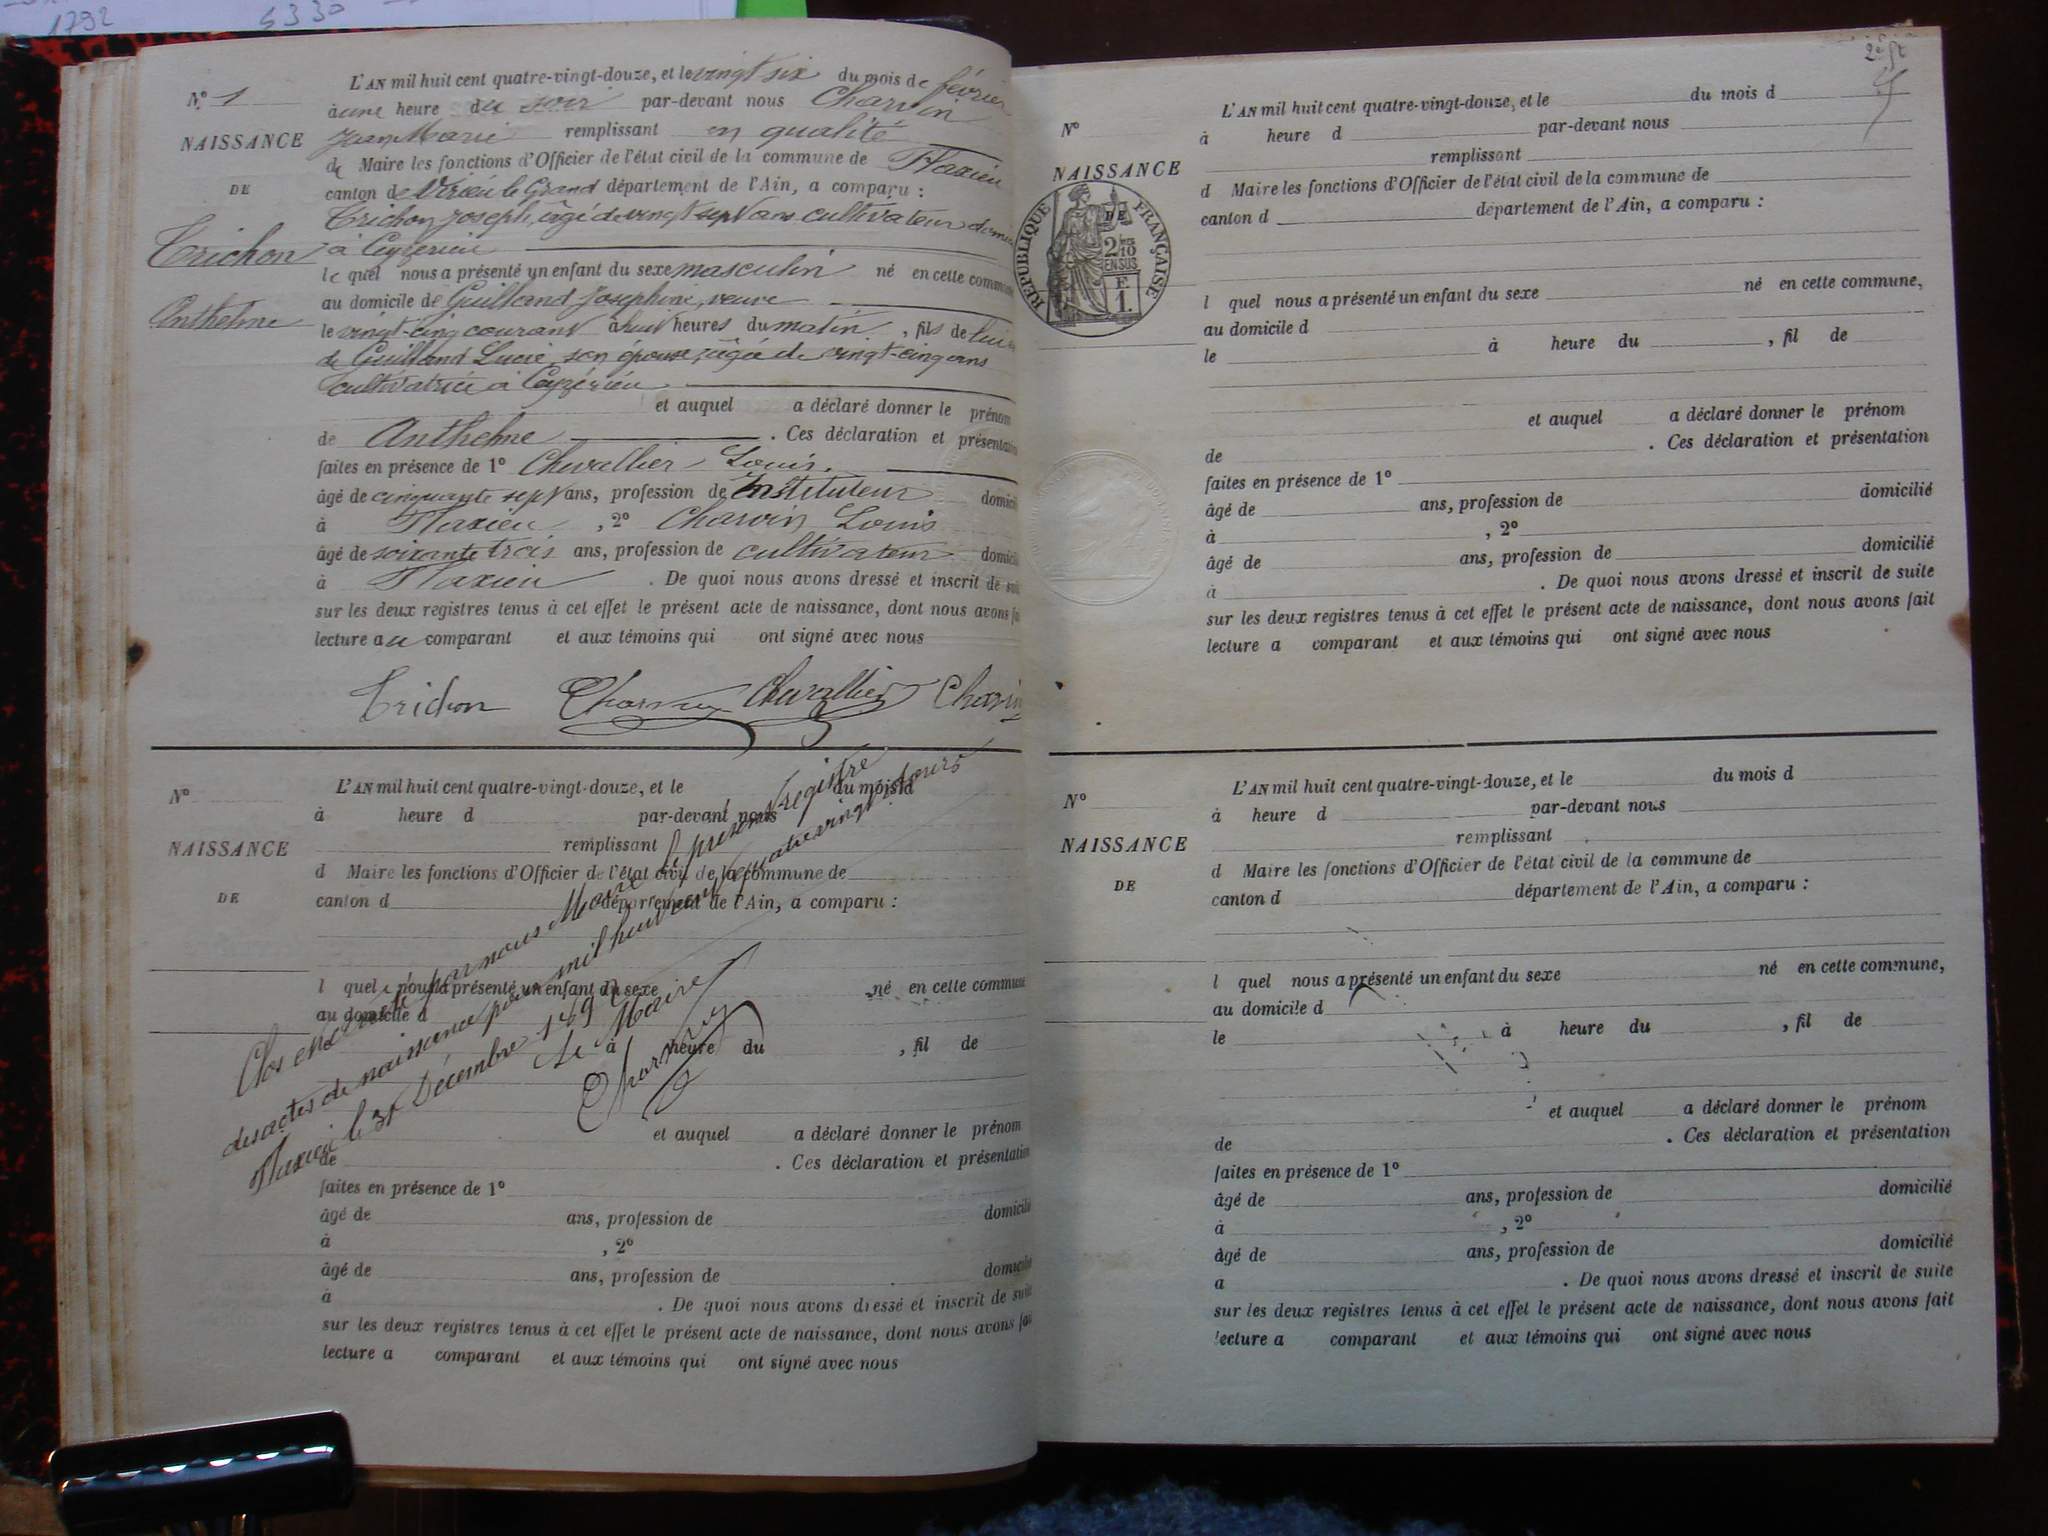 1792 5330
N° 1
NAISSANCE
DE
Trichon
Anthelme
L'AN mil huit cent quatre-vingt-douze, et le vingt six du mois de février
à une heure du soir par-devant nous Charvin
Jean Marie remplissant en qualité
de Maire les fonctions d'Officier de l'état civil de la commune de Flaxieu
canton de Virieu le Grand département de l'Ain, a comparu :
Trichon Joseph, âgé de vingt sept ans cultivateur
à Ceyzerieu
le quel nous a présenté un enfant du sexe masculin né en cette commune
au domicile de Guilland Josephine, veuve
le vingt-cinq courant à huit heures du matin, fils de lui
de Guilland Lucie, son épouse, âgée de vingt-cinq ans
cultivatrice à Ceyzérieu
et auquel a déclaré donner le prénom
de Anthelme . Ces déclaration et présentation
faites en présence de 1° Chevallier Louis.
âgé de cinquante sept ans, profession de Instituteur domicilié
à Flaxieu , 2° Charvin Louis
âgé de soixante trois ans, profession de cultivateur domicilié
à Flaxieu . De quoi nous avons dressé et inscrit de suite
sur les deux registres tenus à cet effet le présent acte de naissance, dont nous avons fait
lecture au comparant et aux témoins qui ont signé avec nous
Trichon Charvin Chevallier Charvin
N°
NAISSANCE
DE
L'AN mil huit cent quatre-vingt-douze, et le du mois d
à heure d par-devant nous
remplissant
d Maire les fonctions d'Officier de l'état civil de la commune de
canton d département de l'Ain, a comparu :
l quel nous a présenté un enfant du sexe né en cette commune
au domicile d
le à heure du , fil de
et auquel a déclaré donner le prénom
de . Ces déclaration et présentation
faites en présence de 1°
âgé de ans, profession de domicilié
à , 2°
âgé de ans, profession de domicilié
à . De quoi nous avons dressé et inscrit de suite
sur les deux registres tenus à cet effet le présent acte de naissance, dont nous avons fait
lecture a comparant et aux témoins qui ont signé avec nous
Clos et par nous Maire le présent registre
des actes de naissance pour mil huit cent quatre vingt douze
Flaxieu le 31 Décembre 1892
Le Maire
Charvin
N°
NAISSANCE
REPUBLIQUE FRANÇAISE
DE
2/10
EN SUS
F.
1.
L'AN mil huit cent quatre-vingt-douze, et le du mois d
à heure d par-devant nous
remplissant
d Maire les fonctions d'Officier de l'état civil de la commune de
canton d département de l'Ain, a comparu :
l quel nous a présenté un enfant du sexe né en cette commune,
au domicile d
le à heure du , fil de
et auquel a déclaré donner le prénom
de . Ces déclaration et présentation
faites en présence de 1°
âgé de ans, profession de domicilié
à , 2°
âgé de ans, profession de domicilié
à . De quoi nous avons dressé et inscrit de suite
sur les deux registres tenus à cet effet le présent acte de naissance, dont nous avons fait
lecture a comparant et aux témoins qui ont signé avec nous
N°
NAISSANCE
DE
L'AN mil huit cent quatre-vingt-douze, et le du mois d
à heure d par-devant nous
remplissant
d Maire les fonctions d'Officier de l'état civil de la commune de
canton d département de l'Ain, a comparu :
l quel nous a présenté un enfant du sexe né en cette commune,
au domicile d
le à heure du , fil de
et auquel a déclaré donner le prénom
de . Ces déclaration et présentation
faites en présence de 1°
âgé de ans, profession de domicilié
à , 2°
âgé de ans, profession de domicilié
a . De quoi nous avons dressé et inscrit de suite
sur les deux registres tenus à cet effet le présent acte de naissance, dont nous avons fait
lecture a comparant et aux témoins qui ont signé avec nous